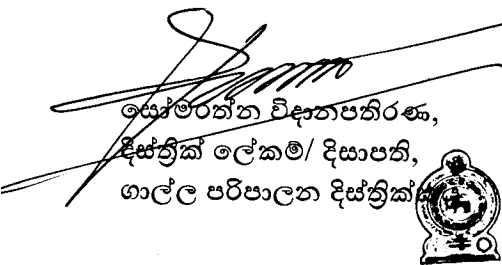 සෝමරත්න විදානපතිරණ,
දිස්ත්‍රික් ලේකම්/ දිසාපති,
ගාල්ල පරිපාලන දිස්ත්‍රික්කය